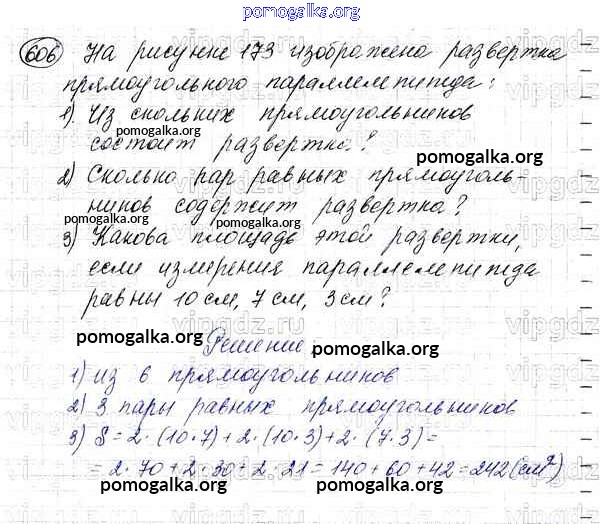 pomogalka.org
606 На рисунке 173 изображена развертка
прямоугольного параллелепипеда:
1). Из скольких прямоугольников
pomogalka.org
состоит развертка?
pomogalka.org
2) Сколько пар равных прямоуголь-
ников содержит развертка?
pomogalka.org
pomogalka.org
3) Какова площадь этой развертки,
если измерения параллелепипеда
равны 10 см, 7 см, 3 см?
pomogalka.org
Решение
pomogalka.org
1) из 6 прямоугольников
pomogalka.org
2) 3 пары равных прямоугольников
pomogalka.org
3) S = 2·(10·7)+2·(10·3)+2·(7·3)=
= 2·70+2·30+2·21=140+60+42=242(см²)
pomogalka.org
pomogalka.org
vipgdz.ru